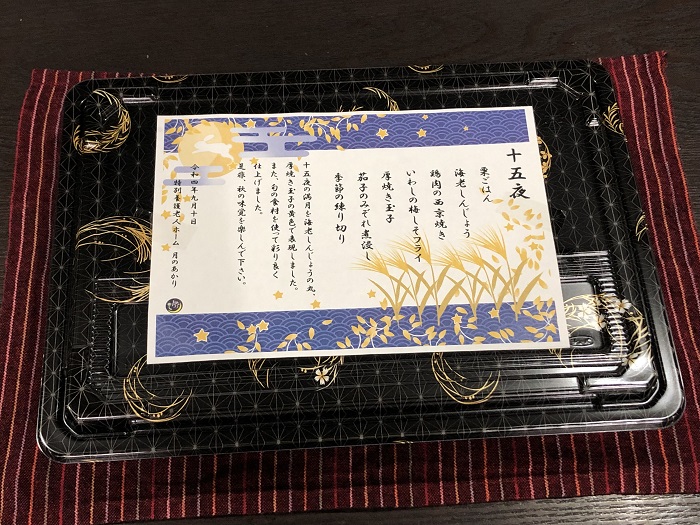 十五夜
栗ごはん
海老しんじょう
鶏肉の西京焼き
いわしの梅しそフライ
厚焼き玉子
茄子のみぞれ煮浸し
季節の練り切り
十五夜の満月を海老しんじょうの丸、
厚焼き玉子の黄色で表現しました。
また、旬の食材を使って彩り良く
仕上げました。
是非、秋の味覚を楽しんで下さい。
令和四年九月十日
特別養護老人ホーム 月のあかり